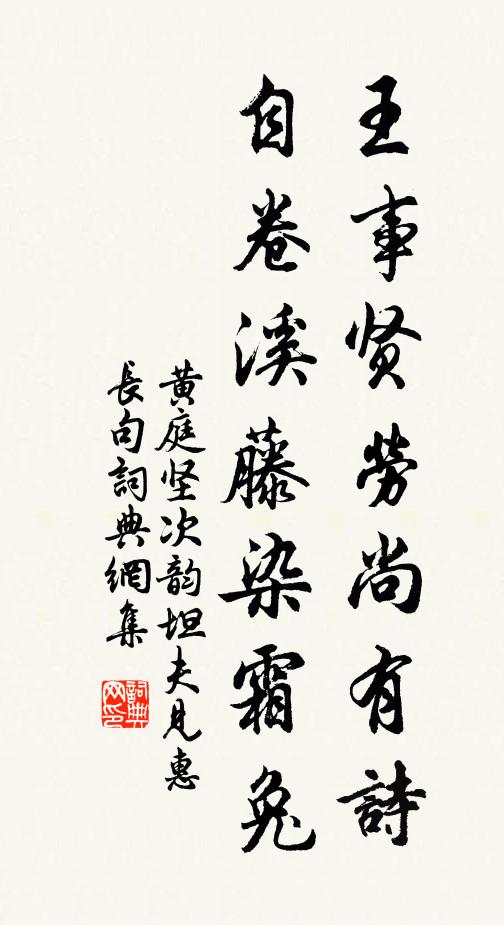 王事贤勞尚有詩
自卷溪藤染霜兔
黄庭坚次韵坦夫見惠
長句詞典網集
詞典网印